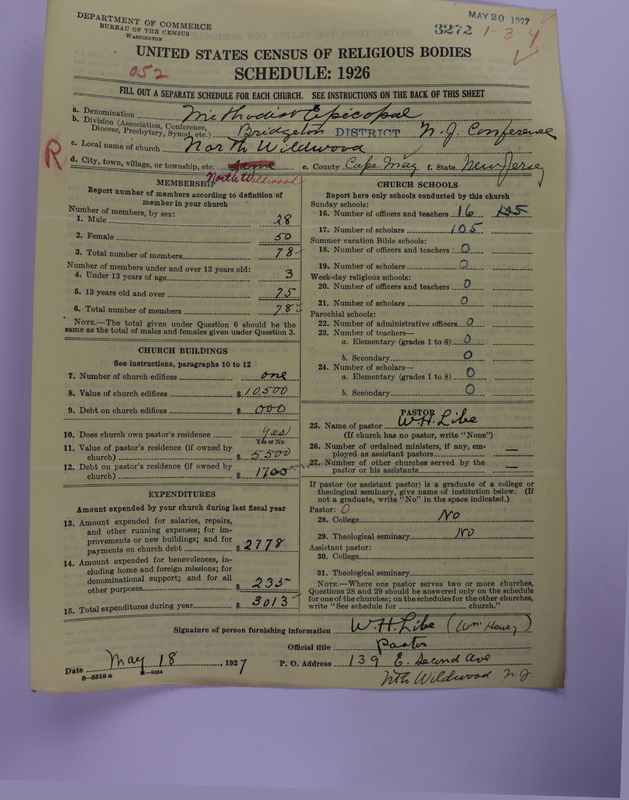 DEPARTMENT OF COMMERCE
BUREAU OF THE CENSUS
WASHINGTON
MAY 20 1927
3272 1-3-4
UNITED STATES CENSUS OF RELIGIOUS BODIES
052
SCHEDULE: 1926
FILL OUT A SEPARATE SCHEDULE FOR EACH CHURCH. SEE INSTRUCTIONS ON THE BACK OF THIS SHEET
a. Denomination Methodist Episcopal
b. Division (Association, Conference, Diocese, Presbytery, Synod, etc.) Bridgeton DISTRICT N.J. Conference
c. Local name of church North Wildwood
R
d. City, town, village, or township, etc. e. County Cape May f. State New Jersey
North Wildwood
MEMBERSHIP
Report number of members according to definition of
member in your church
Number of members, by sex:
1. Male 28
2. Female 50
3. Total number of members 78
Number of members under and over 13 years old:
4. Under 13 years of age 3
5. 13 years old and over 75
6. Total number of members 78
NOTE.—The total given under Question 6 should be
the same as the total of males and females given under Question 3.
CHURCH BUILDINGS
See instructions, paragraphs 10 to 12
7. Number of church edifices one
8. Value of church edifices $10,500
9. Debt on church edifices $000
10. Does church own pastor's residence Yes
Yes or No
11. Value of pastor's residence (if owned by
church) $5500
12. Debt on pastor's residence (if owned by
church) $1700
EXPENDITURES
Amount expended by your church during last fiscal year
13. Amount expended for salaries, repairs,
and other running expenses; for im-
provements or new buildings; and for
payments on church debt $2778
14. Amount expended for benevolences, in-
cluding home and foreign missions; for
denominational support; and for all
other purposes $235
15. Total expenditures during year $3013
CHURCH SCHOOLS
Report here only schools conducted by this church
Sunday schools:
16. Number of officers and teachers 16 105
17. Number of scholars 105
Summer vacation Bible schools:
18. Number of officers and teachers 0
19. Number of scholars 0
Week-day religious schools:
20. Number of officers and teachers 0
21. Number of scholars 0
Parochial schools:
22. Number of administrative officers 0
23. Number of teachers—
a. Elementary (grades 1 to 8) 0
b. Secondary 0
24. Number of scholars—
a. Elementary (grades 1 to 8) 0
b. Secondary 0
PASTOR
25. Name of pastor W.H. Libe
(If church has no pastor, write "None")
26. Number of ordained ministers, if any, em-
ployed as assistant pastors —
27. Number of other churches served by the
pastor or his assistants —
If pastor (or assistant pastor) is a graduate of a college or
theological seminary, give name of institution below. (If
not a graduate, write "No" in the space indicated.)
Pastor: 0
28. College No
29. Theological seminary No
Assistant pastor:
30. College
31. Theological seminary
NOTE.—Where one pastor serves two or more churches,
Questions 28 and 29 should be answered only on the schedule
for one of the churches; on the schedules for the other churches,
write "See schedule for church."
Signature of person furnishing information W.H. Libe (Wm Henry)
Official title Pastor
Date May 18, 1927 P. O. Address 139 E. Second Ave
Nth Wildwood N.J.